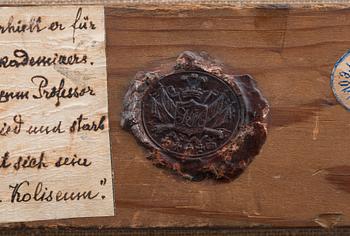 erhielt er für
Akademikers.
Professor
ied und starb
t sich seine
Koliseum".